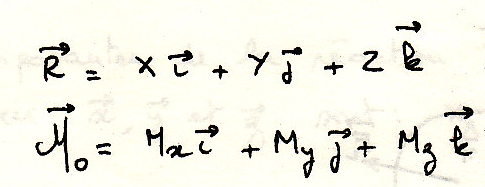 R⃗ = X i⃗ + Y j⃗ + Z k⃗
M⃗₀ = Mₓ i⃗ + My j⃗ + Mz k⃗